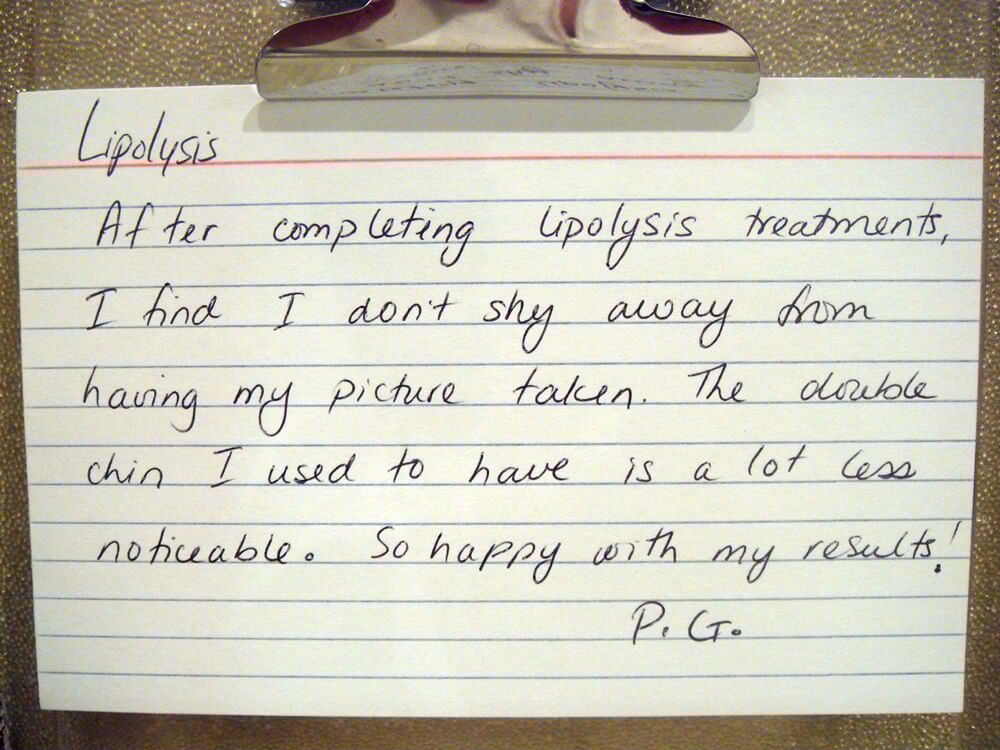 Lipolysis
After completing lipolysis treatments,
I find I don't shy away from
having my picture taken. The double
chin I used to have is a lot less
noticeable. So happy with my results!
P. G.